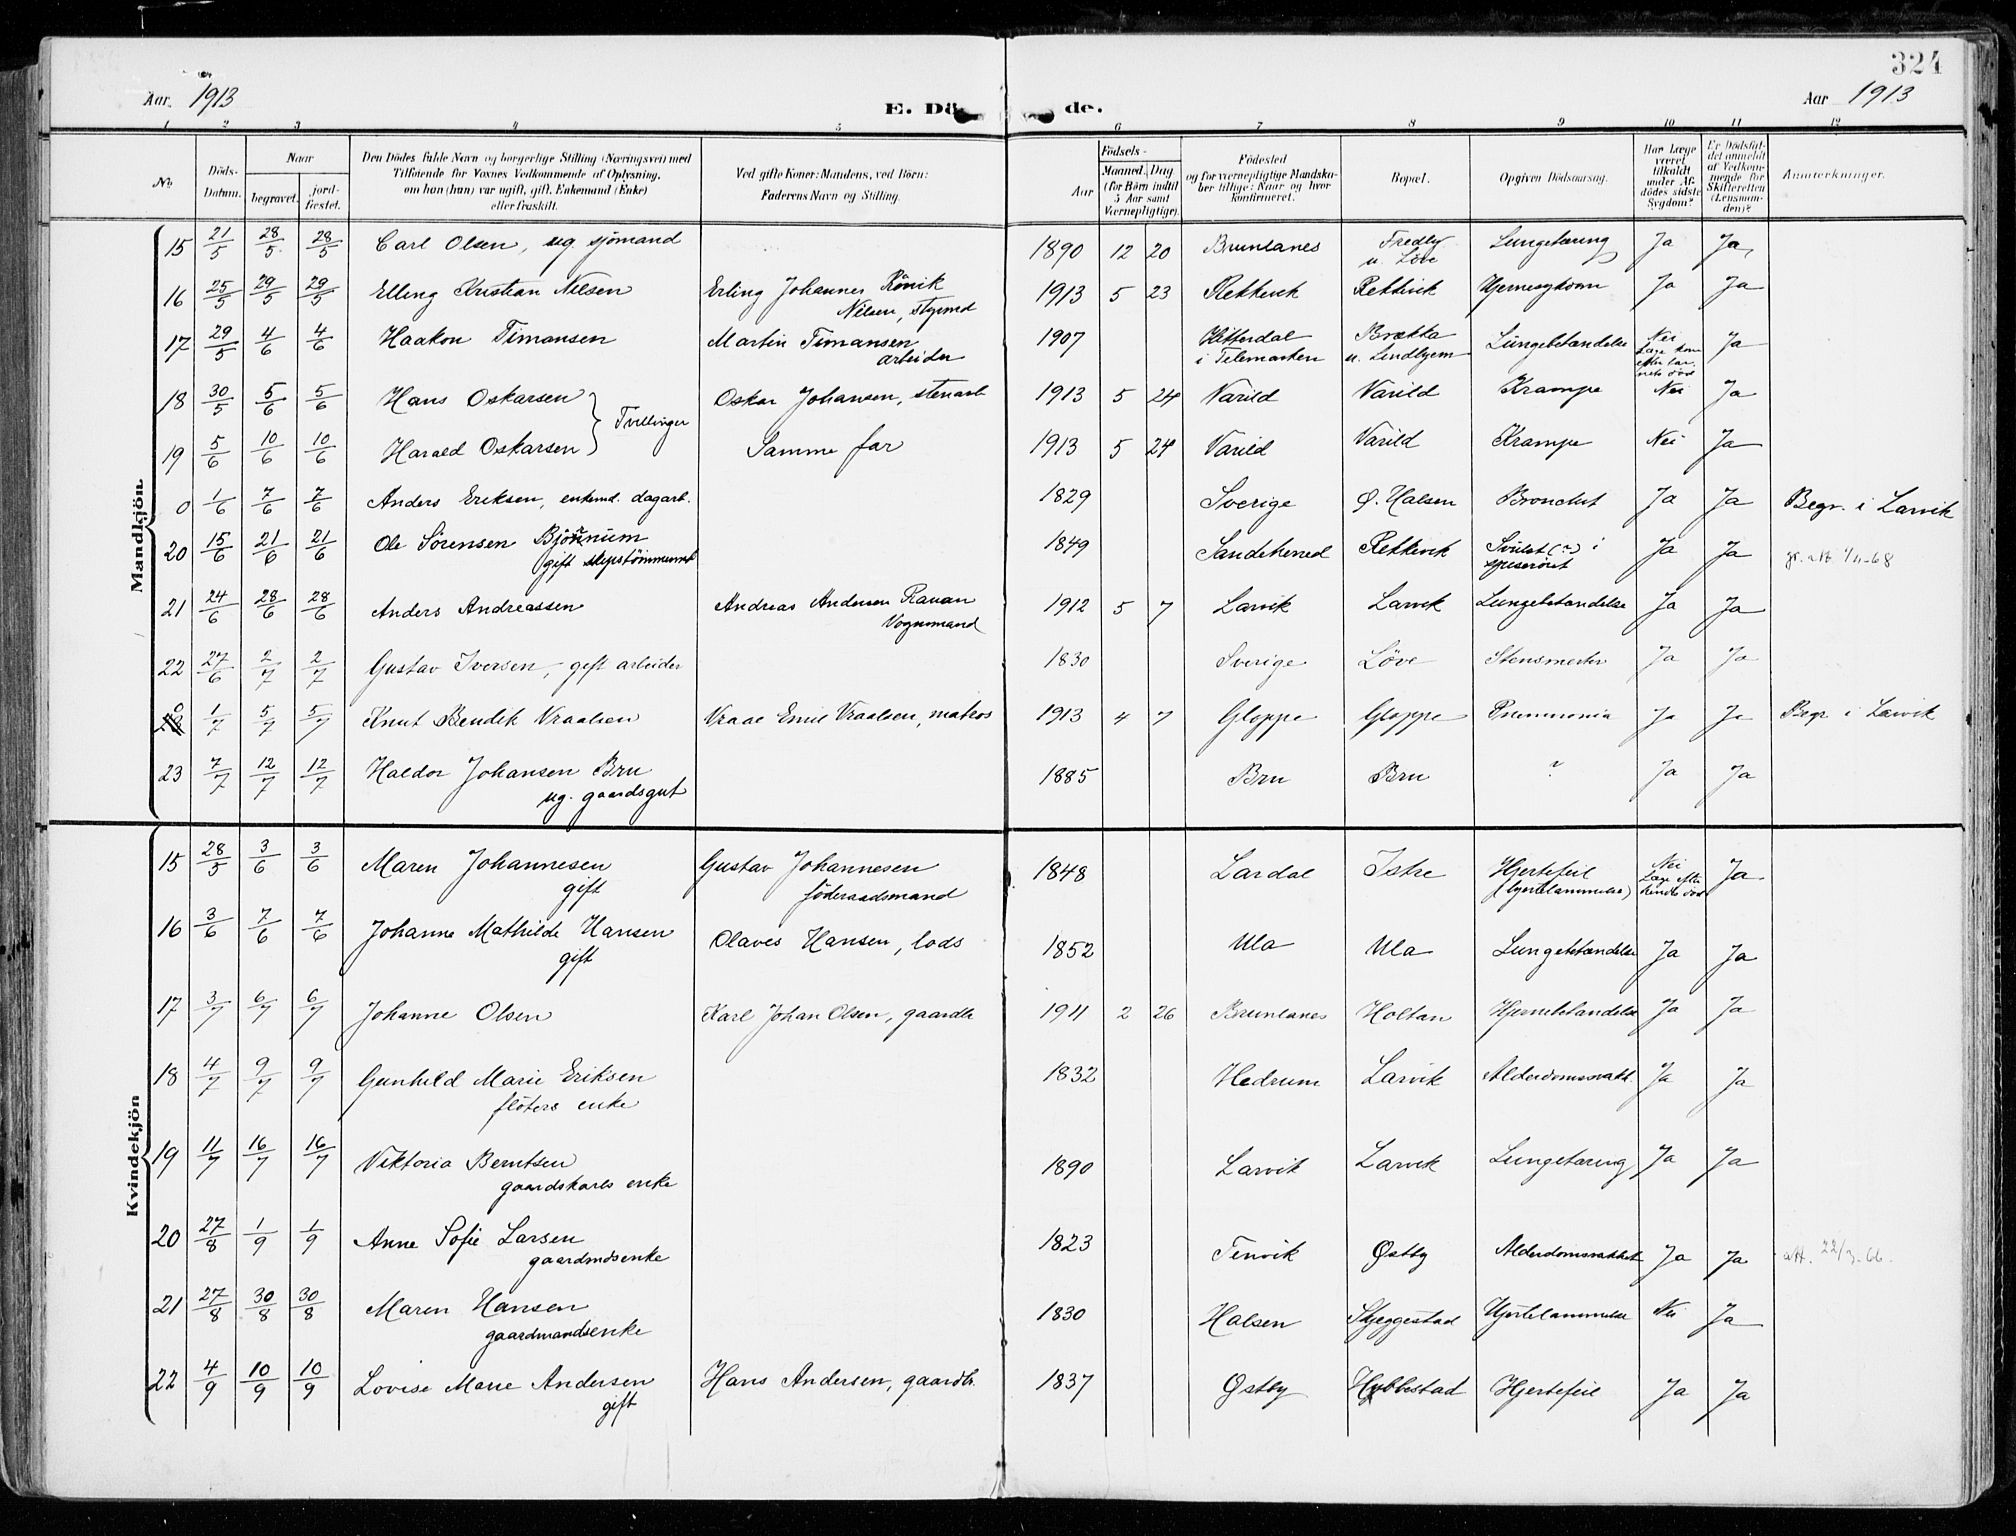 324
Aar 1913 E. Dö de. Aar 1913
1 2 3 4 5 6 7 8 9 10 11 12
No. Döds-Datum. Naar begravet. jord-fæstet. Den Dödes fulde Navn og borgerlige Stilling (Næringsvei) med Tilföiende for Voxnes Vedkommende af Oplysning, om han (hun) var ugift, gift, Enkemand (Enke) eller fraskilt. Ved gifte Koner: Mandens, ved Börn: Faderens Navn og Stilling. Födsels- Aar Maaned. Dag (for Börn indtil 5 Aar samt Værnepligtige). Födested og for værnepligtige Mandska-ber tillige: Naar og hvor konfirmeret. Bopæl. Opgiven Dödsaarsag. Har Læge været tilkaldt under Af-dödes sidste Sygdom? Er Dödsfal-det anmeldt af Vedkom-mende for Skifteretten (Lensman-den)? Anmerkninger.
Mandkjön.
15 21/5 28/5 28/5 Carl Olsen, ug sjömand 1890 12 20 Brunlanes Fredly u. Löve Lungetæring Ja Ja
16 25/5 29/5 29/5 Elling Kristian Nilsen Erling Johannes Rönvik Nilsen, styrmd 1913 5 23 Rekkevik Rekkevik Hjernesygdom Ja Ja
17 29/5 4/6 4/6 Haakon Timansen Martin Timansen arbeider 1907 Hitterdal i Telemarken Brækka u. Lindhjem Lungebetændelse Nei Læge kom efter bar-nets död Ja
18 30/5 5/6 5/6 Hans Oskarsen Tvillinger Oskar Johansen, stenarb 1913 5 24 Varild Varild Krampe Nei Ja
19 5/6 10/6 10/6 Harald Oskarsen Samme far 1913 5 24 Varild Varild Krampe Nei Ja
0 1/6 7/6 7/6 Anders Eriksen, enkemd. dagarb. 1829 Sverige Ø. Halsen Bronchit Ja Ja Begr. i Larvik
20 15/6 21/6 21/6 Ole Sörensen Bjönnum gift skipstömmermd 1849 Sandeherred Rekkevik Svulst (?) i spiseröret Ja Ja
21 24/6 28/6 28/6 Anders Andreassen Andreas Andersen Rauan Vognmand 1912 5 7 Larvik Larvik Lungebetændelse Ja Ja
22 27/6 2/7 2/7 Gustav Iversen, gift arbeider 1830 Sverige Löve Stensmerter Ja Ja
0 1/7 5/7 5/7 Knut Bendik Vraalsen Vraal Emil Vraalsen, matros 1913 4 7 Gloppe Gloppe Pneumonia Ja Ja Begr i Larvik
23 7/7 12/7 12/7 Haldor Johansen Bru ug. gaardsgut 1885 Bru Bru ? Ja Ja
Kvindekjön
15 28/5 3/6 3/6 Maren Johannesen gift Gustav Johannesen föderaadsmand 1848 Lardal Istre Hjertefeil (hjertelammelse) Nei Læge efter hendes död Ja
16 3/6 7/6 7/6 Johanne Mathilde Hansen gift Olaves Hansen, lods 1852 Ula Ula Lungebetændelse Ja Ja
17 3/7 6/7 6/7 Johanne Olsen Karl Johan Olsen, gaardb. 1911 2 26 Brunlanes Holtan Hjernebetændelse Ja Ja
18 4/7 9/7 9/7 Gunhild Marie Eriksen flöters enke 1832 Hedrum Larvik Alderdomssvakh. Ja Ja
19 11/7 16/7 16/7 Viktoria Berntsen gaardskarls enke 1890 Larvik Larvik Lungetæring Ja Ja
20 27/8 1/9 1/9 Anne Sofie Larsen gaardmdsenke 1823 Tenvik Østby Alderdomssvakhet Ja Ja att. 22/3-66.
21 27/8 30/8 30/8 Maren Hansen gaardmandsenke 1830 Halsen Skjeggestad Hjertelammelse Nei Ja
22 4/9 10/9 10/9 Lovise Marie Andersen gift Hans Andersen, gaardb. 1837 Østby Hybbestad Hjertefeil Ja Ja